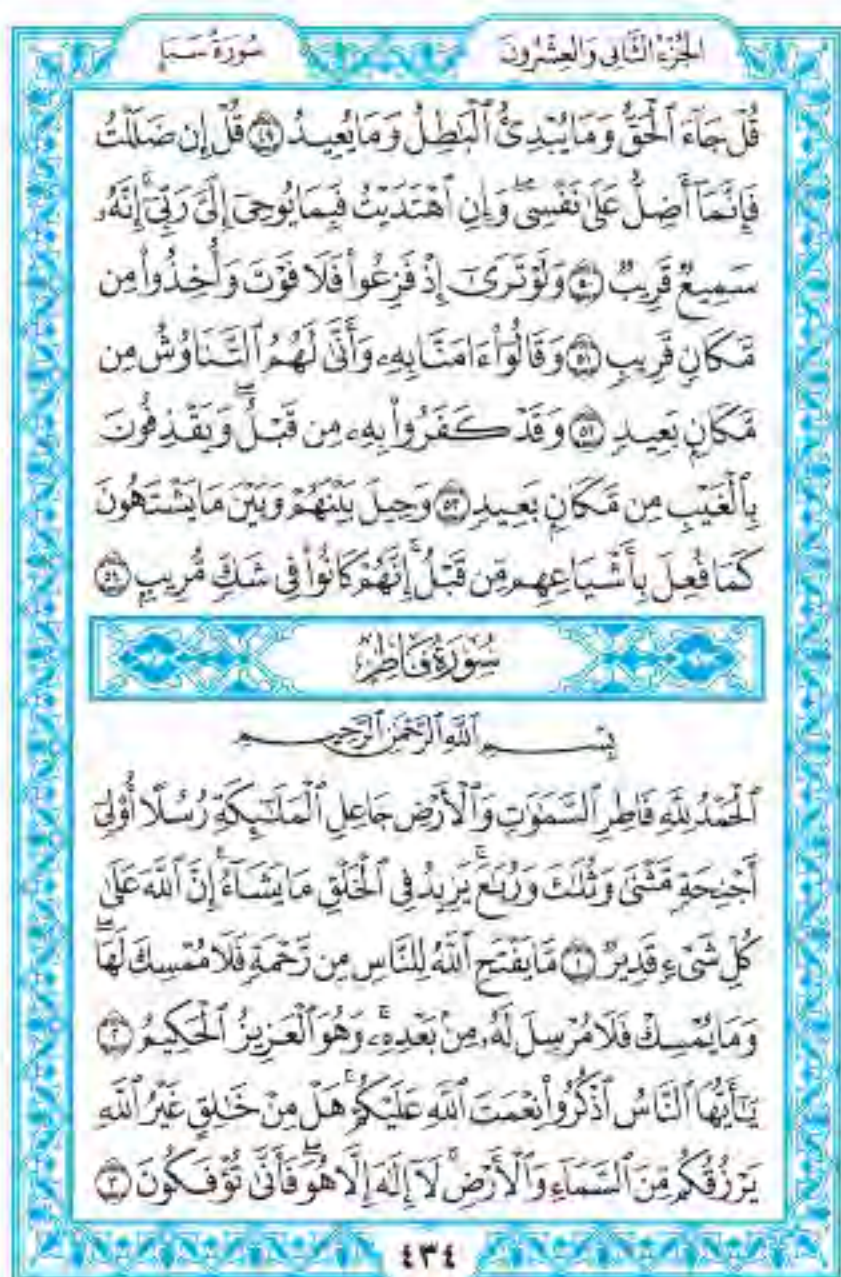 الجزء الثاني والعشرون
سورة سبإ
قُلْ جَآءَ ٱلْحَقُّ وَمَا يُبْدِئُ ٱلْبَٰطِلُ وَمَا يُعِيدُ ٤٩ قُلْ إِن ضَلَلْتُ
فَإِنَّمَآ أَضِلُّ عَلَىٰ نَفْسِىۖ وَإِنِ ٱهْتَدَيْتُ فَبِمَا يُوحِىٓ إِلَىَّ رَبِّىٓۚ إِنَّهُۥ
سَمِيعٌ قَرِيبٌ ٥٠ وَلَوْ تَرَىٰٓ إِذْ فَزِعُوا۟ فَلَا فَوْتَ وَأُخِذُوا۟ مِن
مَّكَانٍ قَرِيبٍ ٥١ وَقَالُوٓا۟ ءَامَنَّا بِهِۦ وَأَنَّىٰ لَهُمُ ٱلتَّنَاوُشُ مِن
مَّكَانٍۭ بَعِيدٍ ٥٢ وَقَدْ كَفَرُوا۟ بِهِۦ مِن قَبْلُۖ وَيَقْذِفُونَ
بِٱلْغَيْبِ مِن مَّكَانٍۭ بَعِيدٍ ٥٣ وَحِيلَ بَيْنَهُمْ وَبَيْنَ مَا يَشْتَهُونَ
كَمَا فُعِلَ بِأَشْيَاعِهِم مِّن قَبْلُۚ إِنَّهُمْ كَانُوا۟ فِى شَكٍّ مُّرِيبٍۭ ٥٤
سُورَةُ فَاطِرٍ
بِسْمِ ٱللَّهِ ٱلرَّحْمَٰنِ ٱلرَّحِيمِ
ٱلْحَمْدُ لِلَّهِ فَاطِرِ ٱلسَّمَٰوَٰتِ وَٱلْأَرْضِ جَاعِلِ ٱلْمَلَٰٓئِكَةِ رُسُلًا أُو۟لِىٓ
أَجْنِحَةٍ مَّثْنَىٰ وَثُلَٰثَ وَرُبَٰعَۚ يَزِيدُ فِى ٱلْخَلْقِ مَا يَشَآءُۚ إِنَّ ٱللَّهَ عَلَىٰ
كُلِّ شَىْءٍ قَدِيرٌ ١ مَّا يَفْتَحِ ٱللَّهُ لِلنَّاسِ مِن رَّحْمَةٍ فَلَا مُمْسِكَ لَهَاۖ
وَمَا يُمْسِكْ فَلَا مُرْسِلَ لَهُۥ مِنۢ بَعْدِهِۦۚ وَهُوَ ٱلْعَزِيزُ ٱلْحَكِيمُ ٢
يَٰٓأَيُّهَا ٱلنَّاسُ ٱذْكُرُوا۟ نِعْمَتَ ٱللَّهِ عَلَيْكُمْۚ هَلْ مِنْ خَٰلِقٍ غَيْرُ ٱللَّهِ
يَرْزُقُكُم مِّنَ ٱلسَّمَآءِ وَٱلْأَرْضِۚ لَآ إِلَٰهَ إِلَّا هُوَۖ فَأَنَّىٰ تُؤْفَكُونَ ٣
٤٣٤